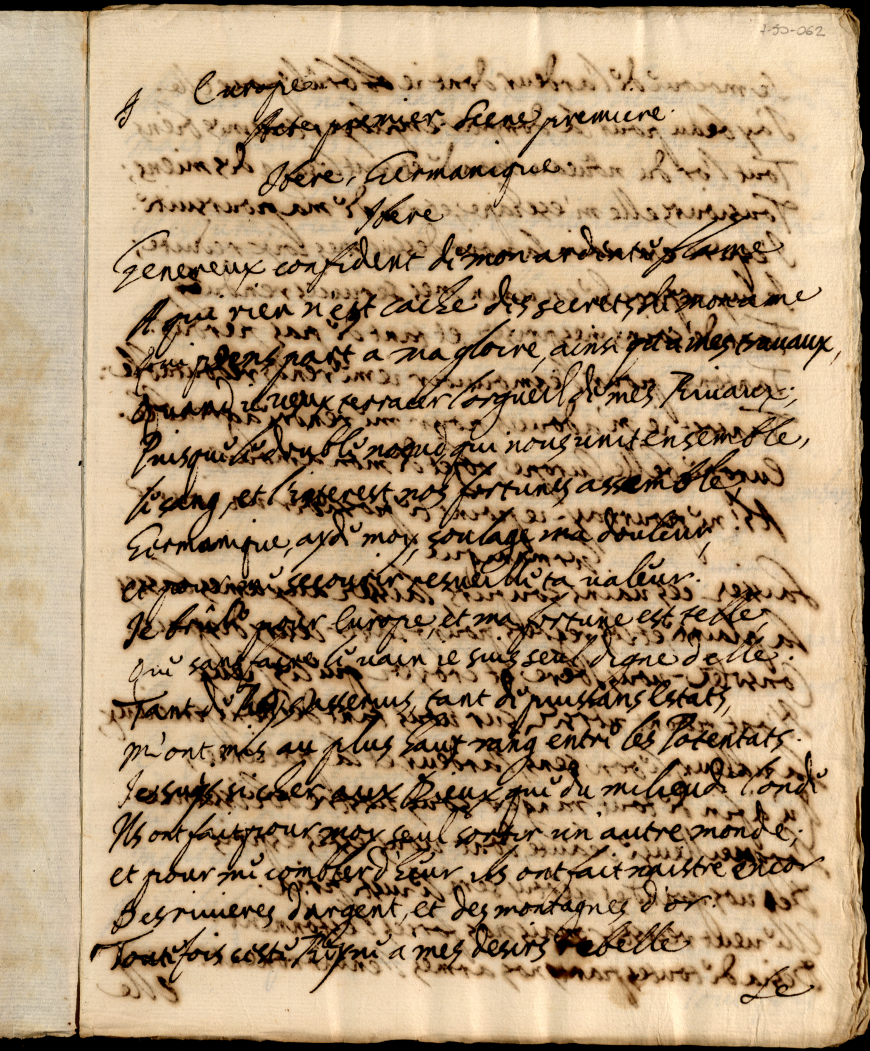 7-50-062
Europe
Acte premier Scene premiere.
Ibere, Germanique
Ibere
Genereux confident de mon ardente flame
A qui rien n'est caché des secrets de mon ame
Qui prens part a ma gloire, ainsi qu'a mes travaux,
Quand je veux terracer l'orgueil de mes Rivaux;
Puisque le double noeud qui nous unit ensemble,
le sang, et l'interest nos fortunes assemble
Germanique, ayde moy, soulage ma douleur,
et pour me secourir resveille ta valeur.
Je brûle pour Europe, et ma fortune est telle,
Que sans faire le vain je suis seul digne d'elle.
Tant de Roys asservis, tant de puissans Estats,
M'ont mis au plus haut rang entre les Potentats.
Je suis si cher aux Dieux que du milieu de l'onde
Ils ont fait pour moy seul sortir un autre monde;
et pour me combler d'heur ils ont fait naistre encor
Des rivieres d'argent, et des montagnes d'or.
Toutefois ceste Reyne a mes desirs rebelle